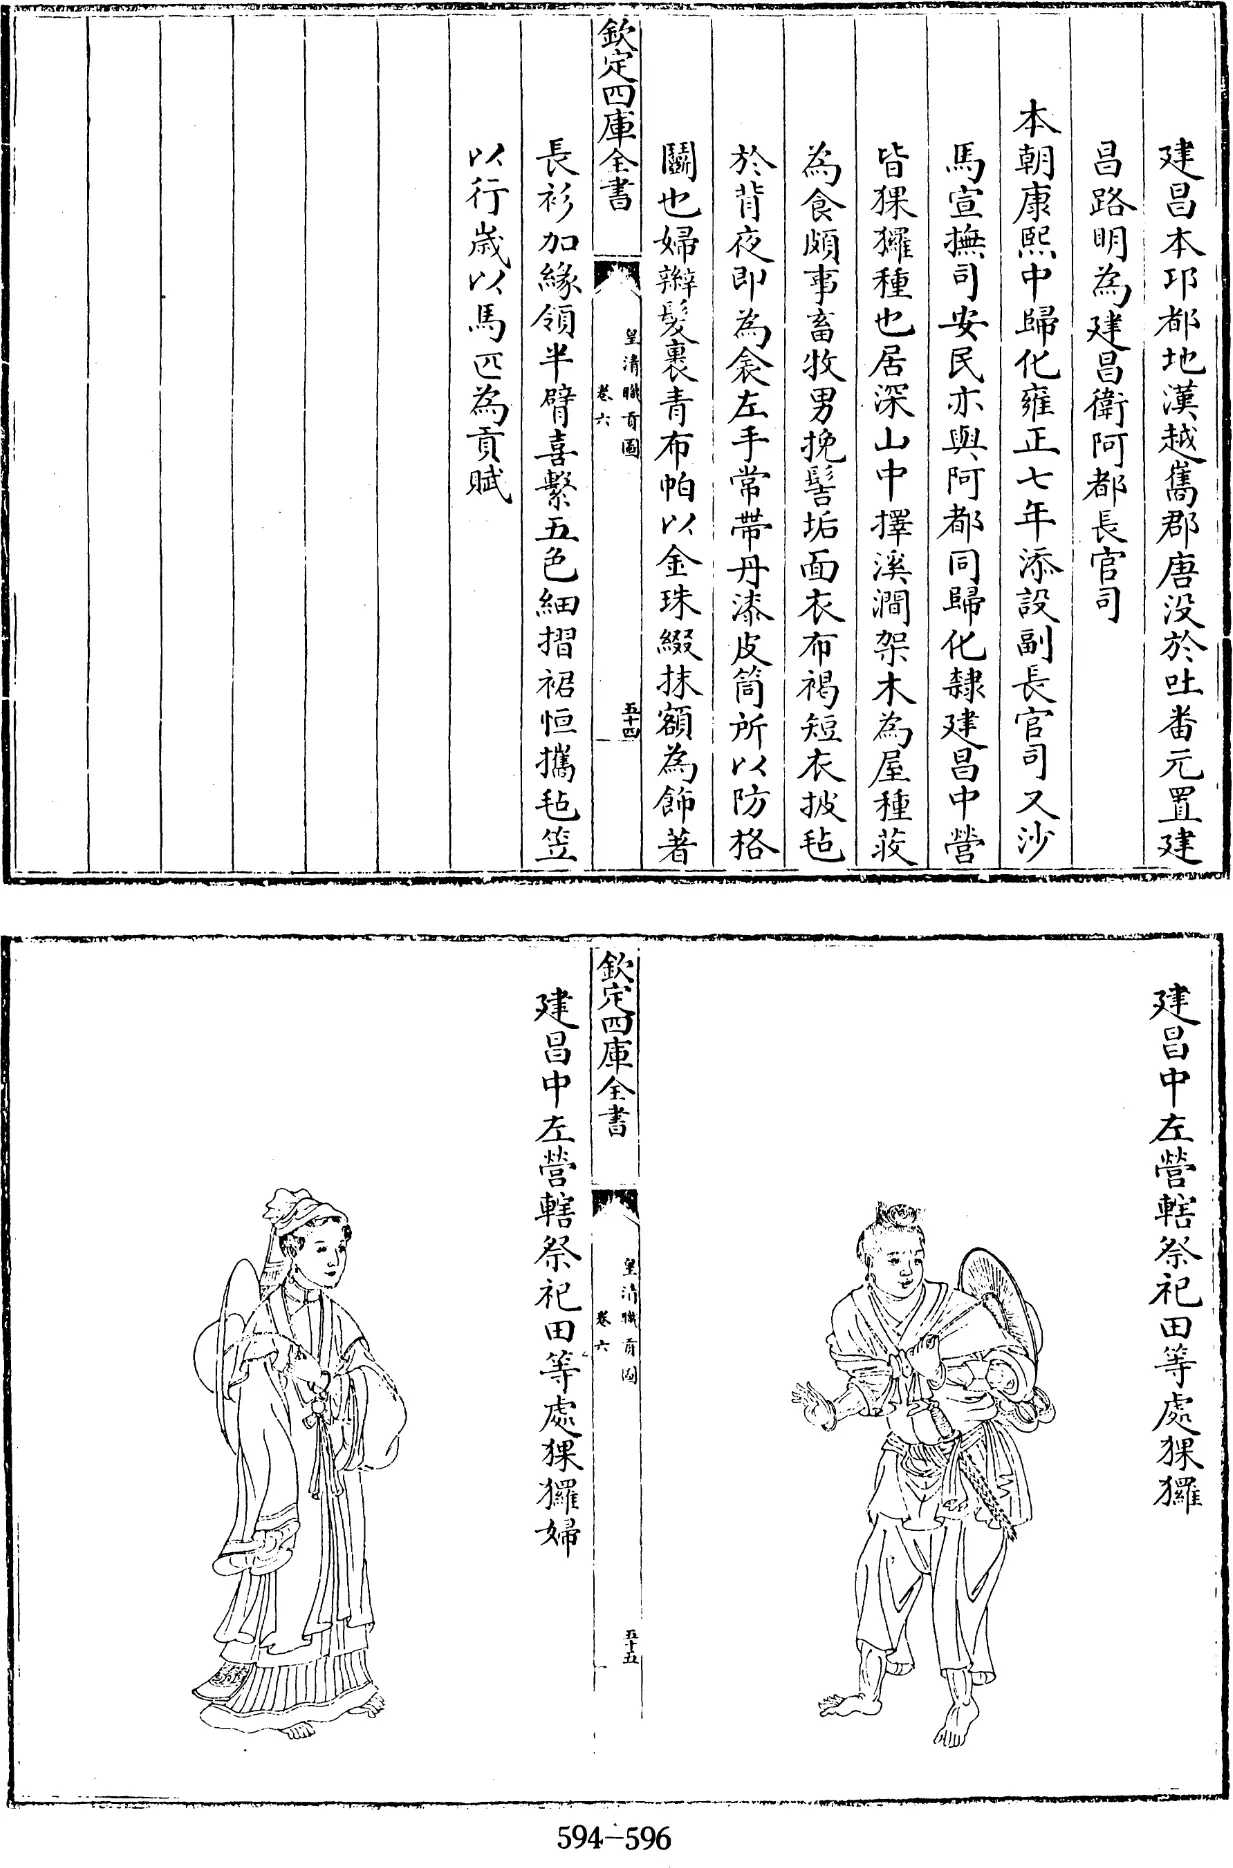 建昌本邛都地漢越嶲郡唐没於吐番元置建
昌路明為建昌衛阿都長官司
本朝康熙中歸化雍正七年添設副長官司又沙
馬宣撫司安民亦與阿都同歸化隸建昌中營
皆猓玀種也居深山中擇溪澗架木為屋種荍
為食頗事畜牧男挽髻垢面衣布褐短衣披毡
於背夜即為衾左手常帶丹漆皮筒所以防格
鬭也婦辮髮裹青布帕以金珠綴抹額為飾著
欽定四庫全書
皇清職貢圖
卷六
五十四
長衫加緣領半臂喜繫五色細摺裙恒攜毡笠
以行歲以馬匹為貢賦
建昌中左營轄祭祀田等處猓玀
欽定四庫全書
皇清職貢圖
卷六
五十五
建昌中左營轄祭祀田等處猓玀婦
594-596